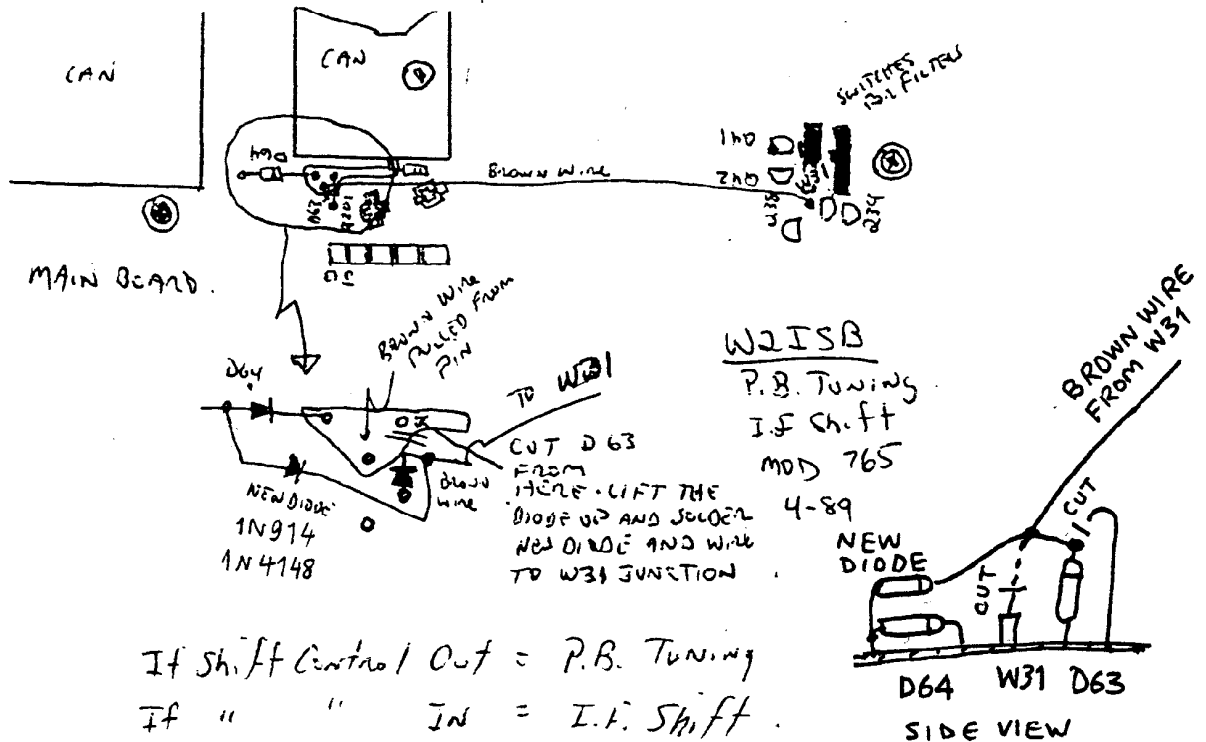 CAN
CAN
SWITCHES
FILTERS
D64
Q41
Q42
BROWN WIRE
D63
Q38
Q34
MAIN BOARD.
BROWN WIRE
PULLED FROM
PIN
D64
TO W31
CUT D63
FROM
HERE. LIFT THE
DIODE UP AND SOLDER
NEW DIODE AND WIRE
TO W31 JUNCTION.
BROWN
WIRE
NEW DIODE
1N914
1N4148
W2ISB
P.B. TUNING
I.F Shift
MOD 765
4-89
BROWN WIRE
FROM W31
CUT
NEW
DIODE
CUT
D64 W31 D63
SIDE VIEW
If Shift Control Out = P.B. TUNING
If " " IN = I.F. Shift.